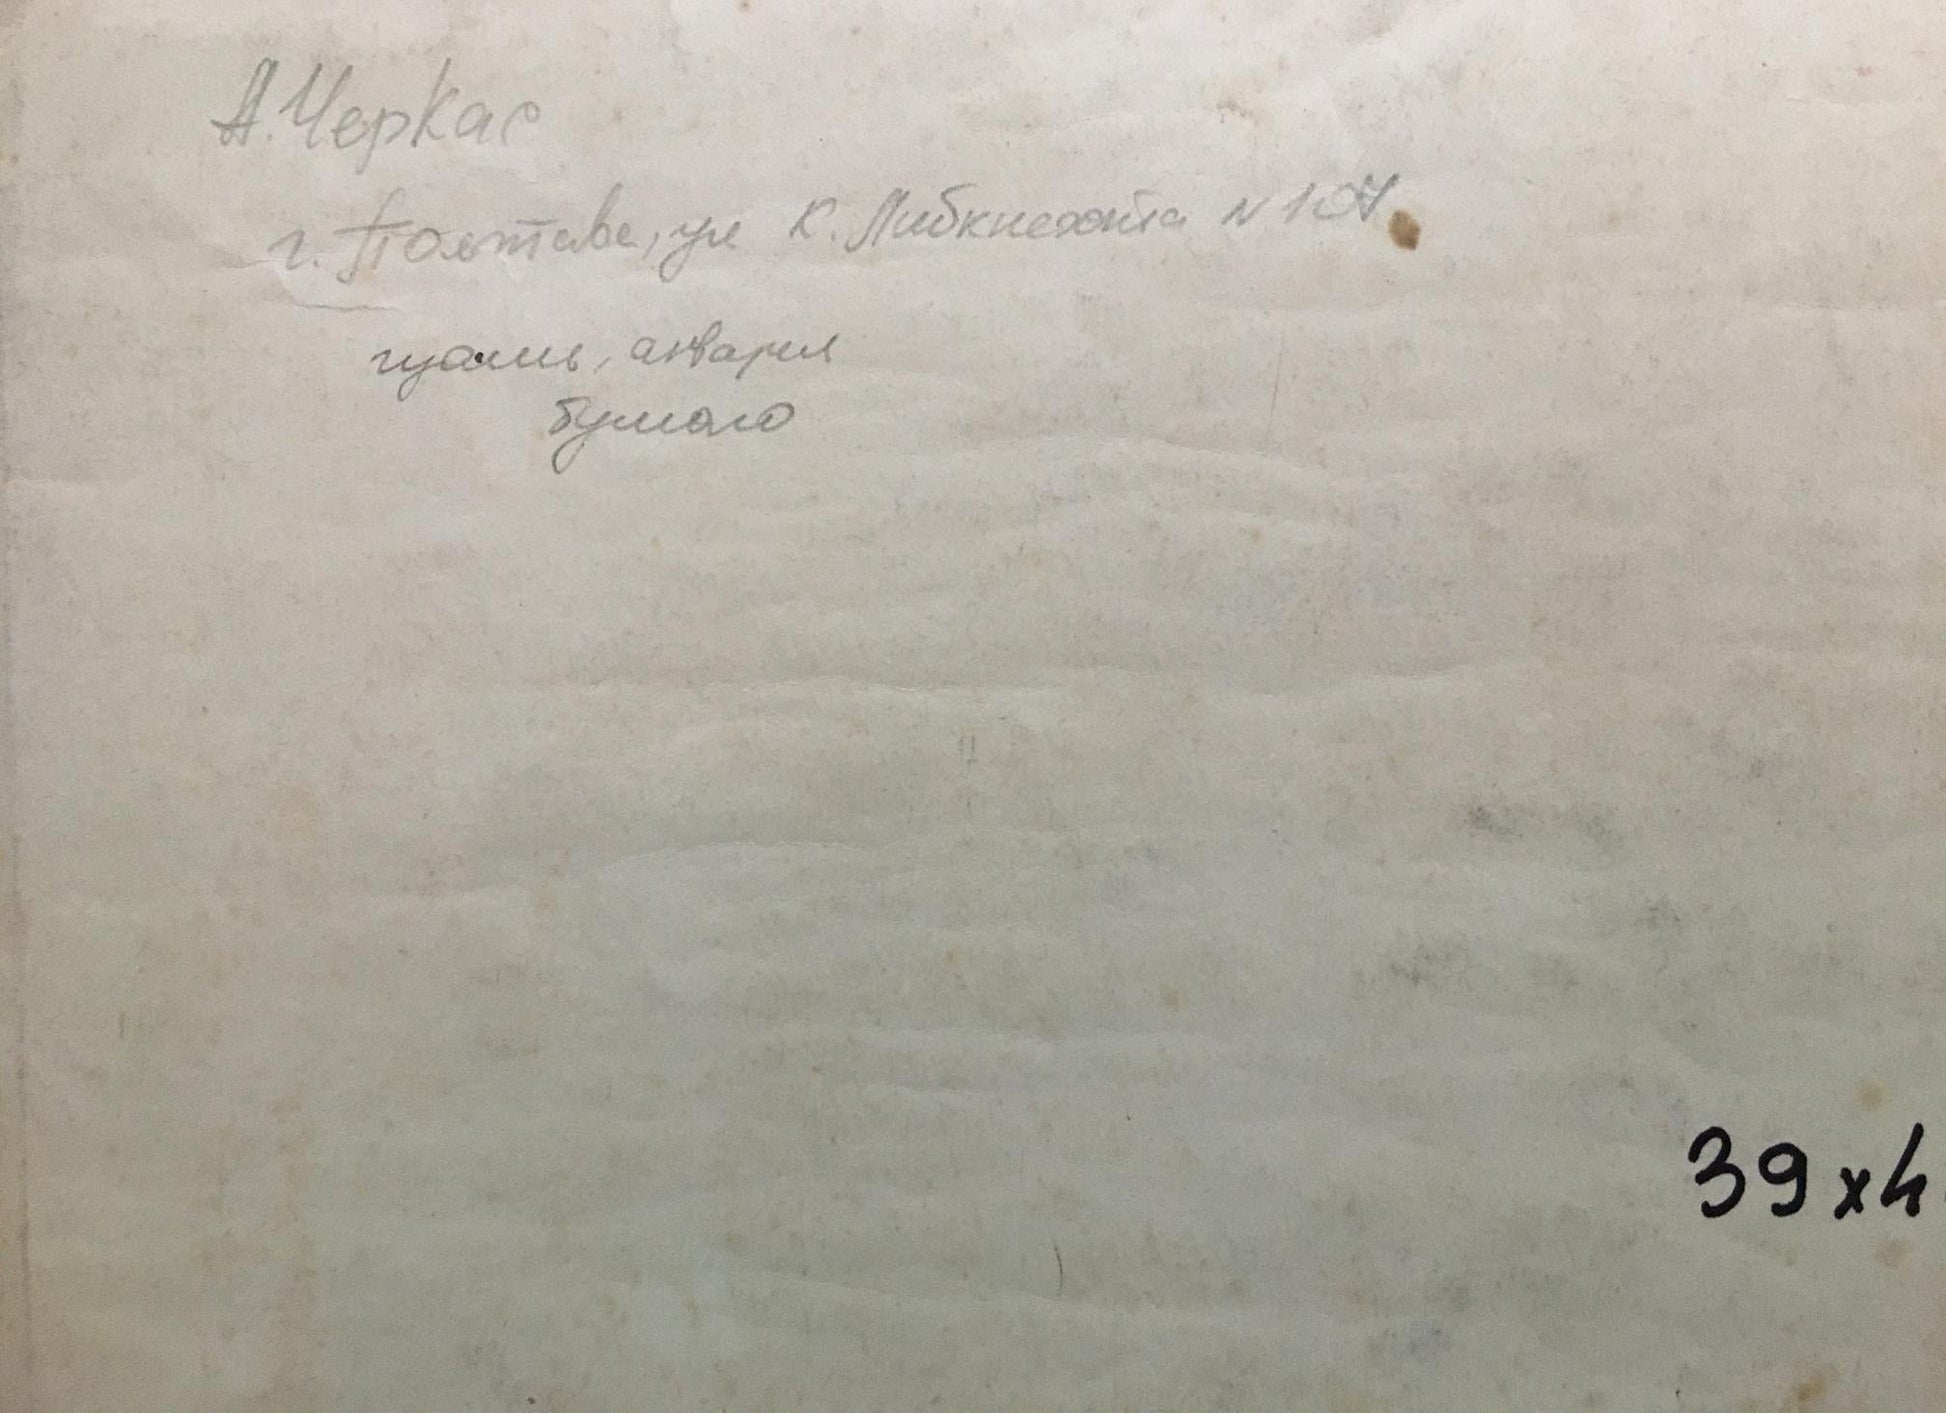 А. Черкас
г. Полтава, ул К. Либкнехта N 107
гуашь, акварел
бумаго
39 x 4